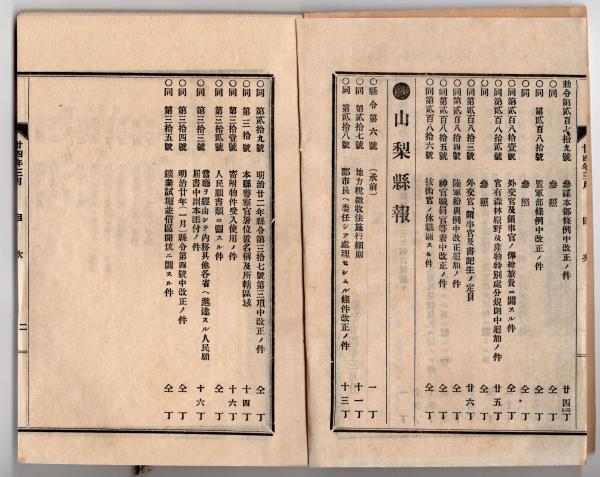 勅令第貳百七拾九號 參謀本部條例中改正ノ件 廿四丁
〇同 第貳百八拾號 監軍部條例中改正ノ件 仝丁
〇同 參照 仝丁
〇同 第貳百八拾壹號 外交官及領事官ノ俸給旅費ニ關スル件 仝丁
〇同 第貳百八拾貳號 官有森林原野及產物特別處分規則中追加ノ件 廿五丁
〇同 參照 仝丁
〇同 第貳百八拾三號 外交官、領事官及書記生ノ定員 廿六丁
〇同 第貳百八拾四號 陸軍給與例中改正追加ノ件 仝丁
〇同 第貳百八拾五號 神官職員官等表中改正ノ件 仝丁
〇同 第貳百八拾六號 技術官ノ休職ニ關スル件 仝丁
山梨縣報
〇縣令第六號 (承前) 一丁
〇同 第貳拾七號 地方稅徵收法施行細則 十一丁
〇同 第貳拾八號 郡市長ヘ委任シテ處理セシムル條件改正ノ件 十三丁
〇同 第貳拾九號 明治廿二年縣令第三拾七號第三項中改正ノ件 仝丁
〇同 第三拾號 本縣警察官署位置名稱及所轄區域 十四丁
〇同 第三拾壹號 寄附物件受入使用ノ件 十六丁
〇同 第三拾貳號 人民願書類ニ關スル件 仝丁
〇同 第三拾三號 當廳ヲ經由シテ內務其他各省ヘ進達スル人民願屆書中副本添付ノ件 十六丁
〇同 第三拾四號 明治廿年(二月)縣令第四號中改正ノ件 仝丁
〇同 第三拾五號 鑛業試堀並借區開坑ニ關スル件 仝丁
廿四年三月 目次 二